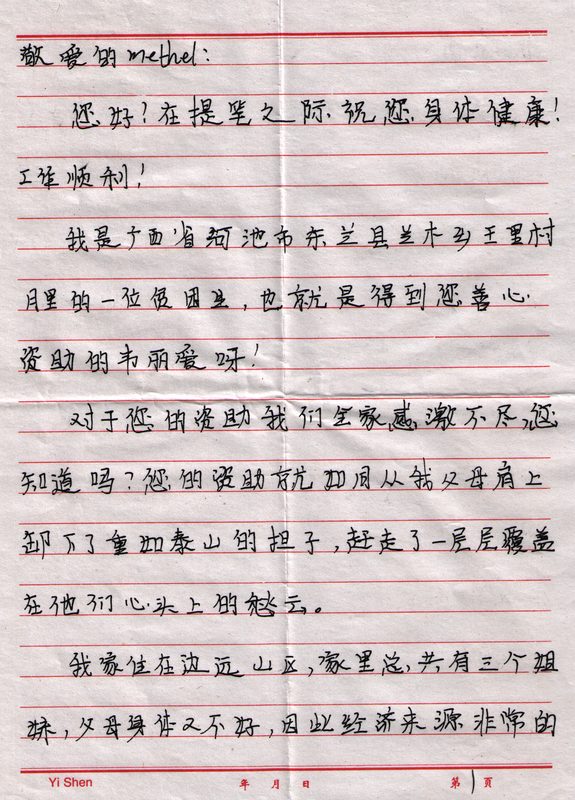 敬爱的methel:
您好！在提笔之际，祝您身体健康！
工作顺利！
我是广西省河池市东兰县兰木乡王里村
月里的一位贫困生，也就是得到您善心
资助的韦丽爱呀！
对于您的资助我们全家感激不尽，您
知道吗？您的资助就如同从我父母肩上
卸下了重如泰山的担子，赶走了一层层覆盖
在他们心头上的愁云。
我家住在边远山区，家里总共有三个姐
妹，父母身体又不好，因此经济来源非常的
Yi Shen 年 月 日 第1页